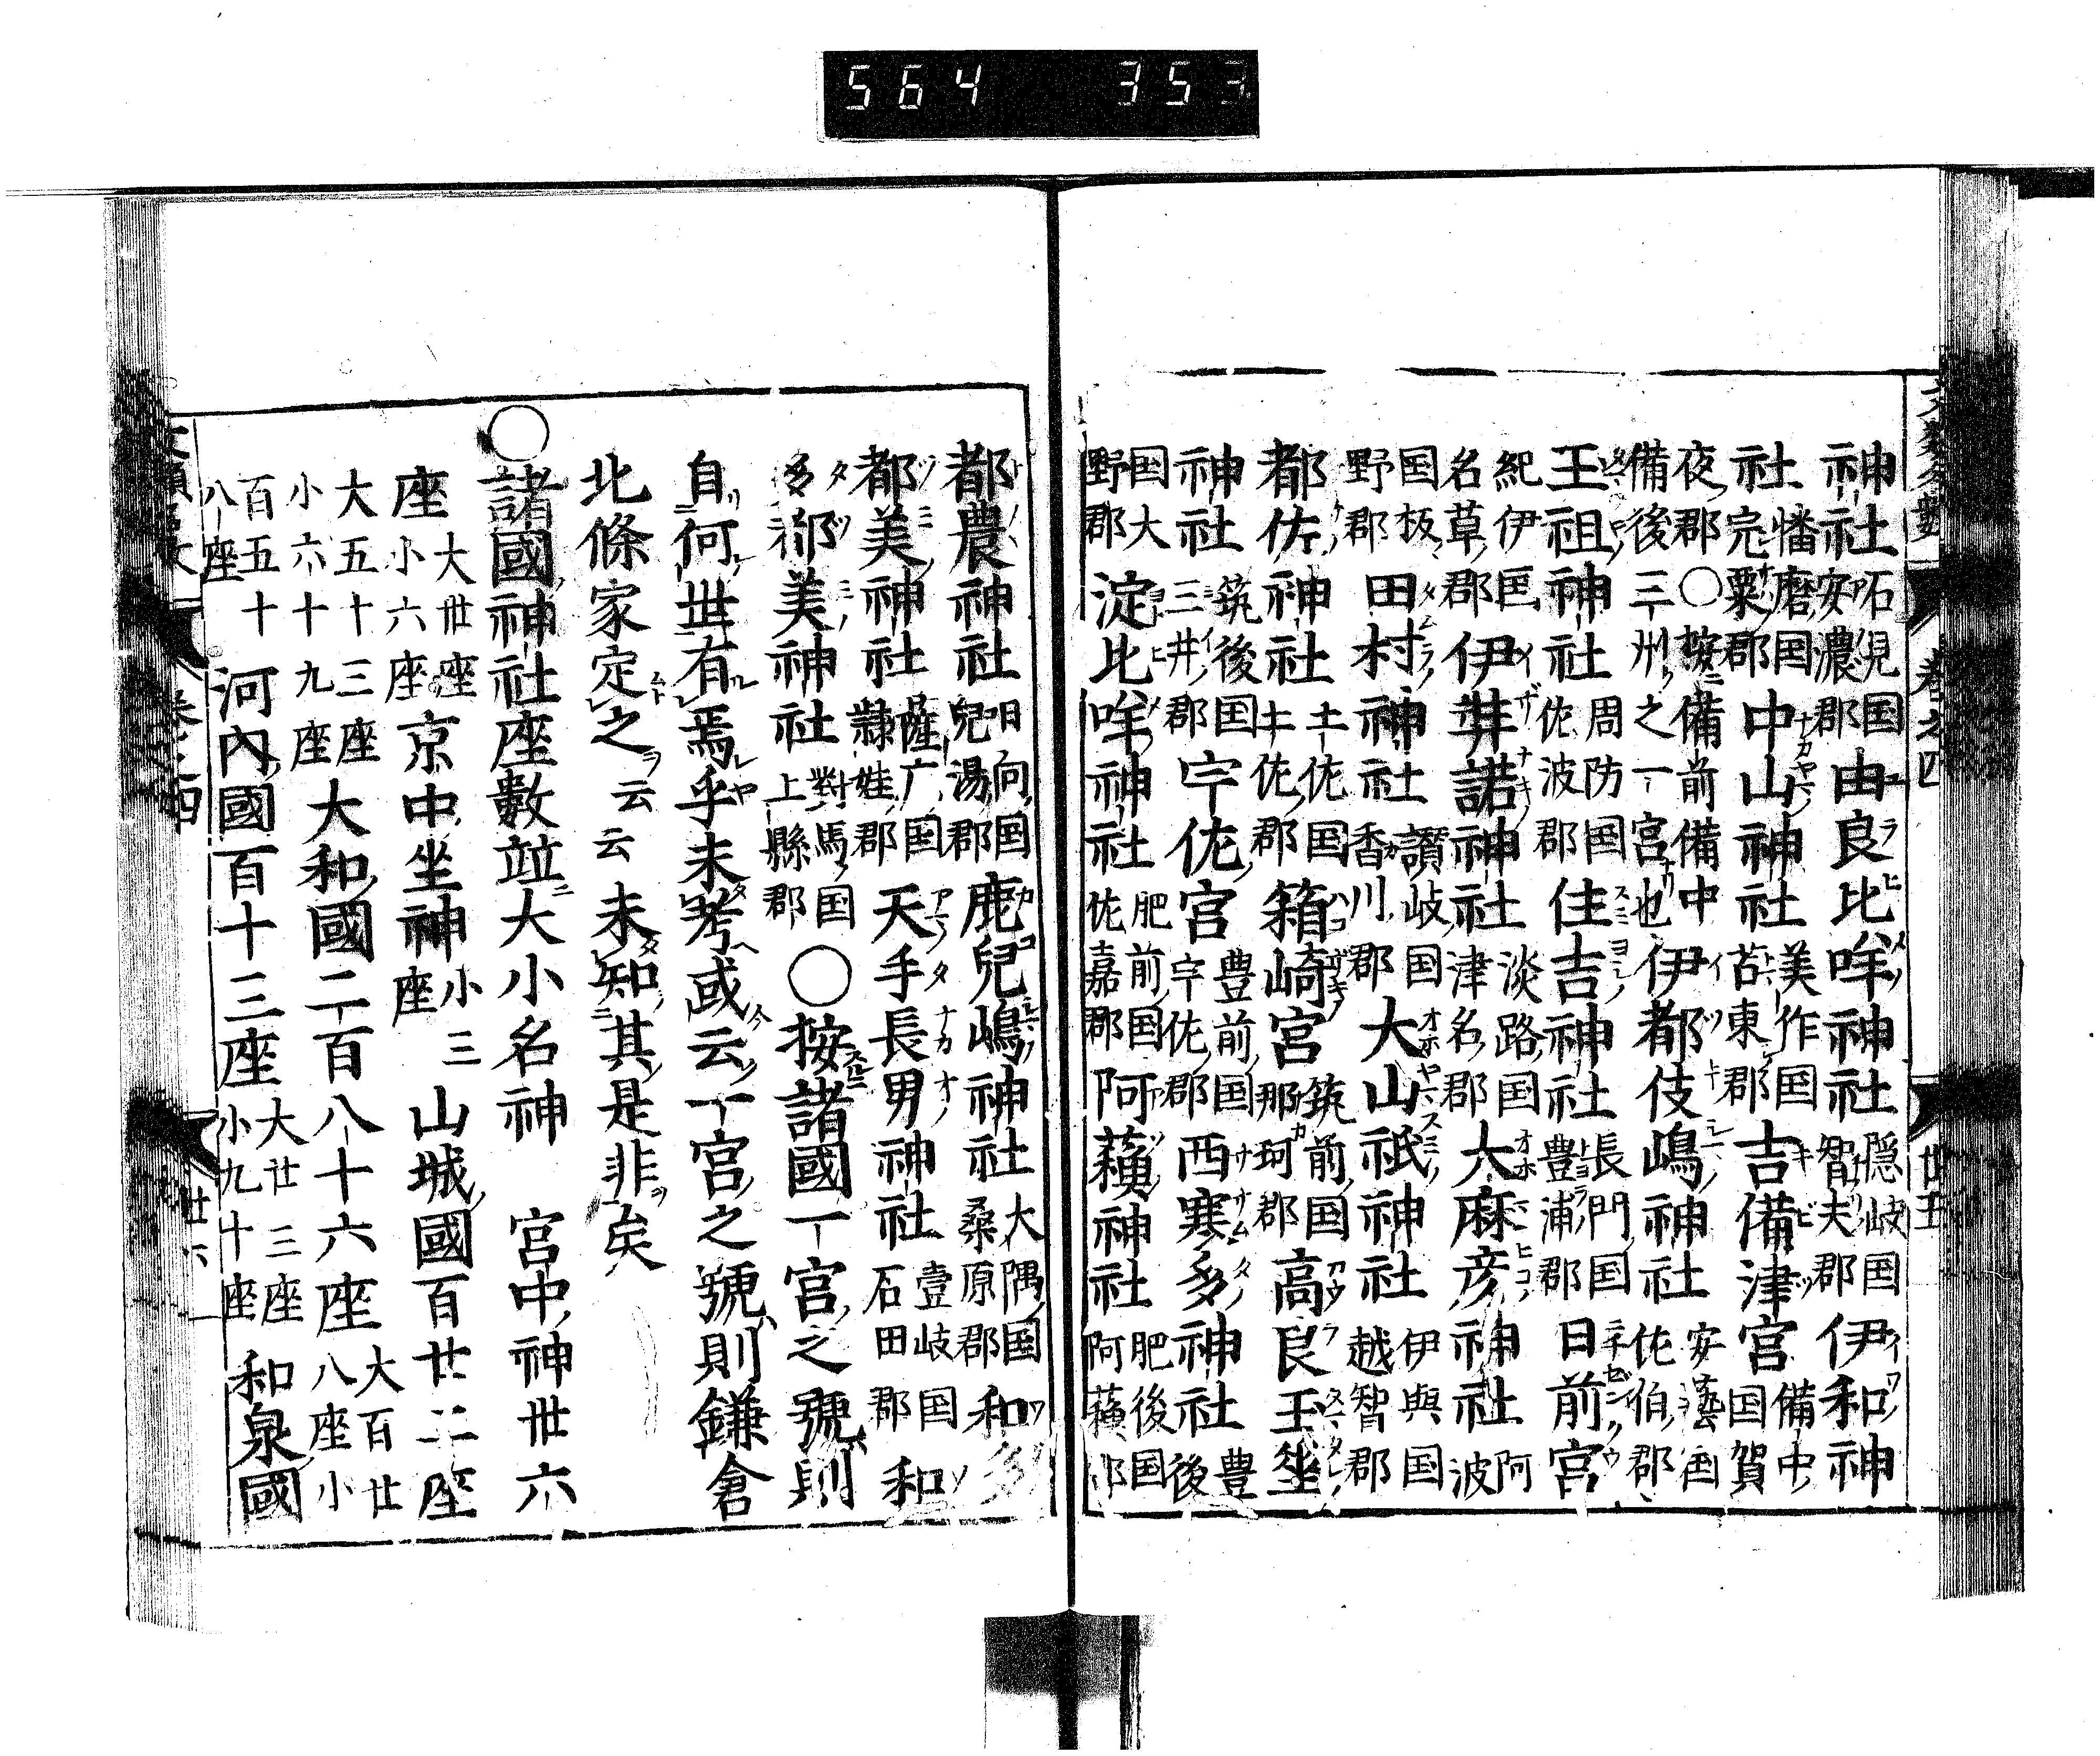 564 353
神社石見国安濃郡由良比哶神社隠岐国智夫郡伊和神
社幡磨国宍粟郡中山神社美作国苫東郡吉備津宮備中国賀
夜郡○按備前備中備後三州之一宮也伊都伎嶋神社安藝国佐伯郡
王祖神社周防国佐波郡住吉神社長門国豊浦郡日前宮
紀伊国名草郡伊弉諾神社淡路国津名郡大麻彦神社阿波
国板野郡田村神社讃岐国香川郡大山祇神社伊與国越智郡
都佐神社土佐国土佐郡箱崎宮筑前国那珂郡高良玉垂
神社筑後国三井郡宇佐宮豊前国宇佐郡西寒多神社豊後
国大野郡淀比哶神社肥前国佐嘉郡阿蘓神社肥後国阿蘓郡
都農神社日向国兒湯郡鹿兒嶋神社大隅国桑原郡和多
都美神社薩广国頴娃郡天手長男神社壹岐国石田郡和
多都美神社對馬国上縣郡○按諸國一宮之號則
自何世有焉乎未考或云一宮之號則鎌倉
北條家定之云云未知其是非矣
○諸國神社座數竝大小名神 宮中神丗六
座大丗座小六座京中坐神小三座山城國百廿二座
大五十三座小六十九座大和國二百八十六座大百廿八座小
百五十八座河內國百十三座大廿三座小九十座和泉國
卷之四 廿五
卷之四 廿六